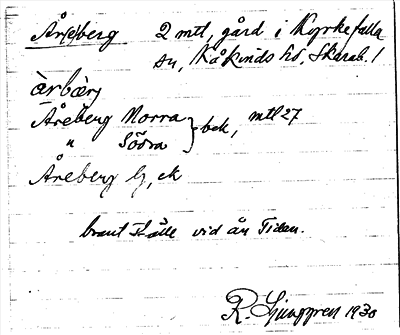 År(e)berg 2 mtl, gård i Kyrkefalla
sn, Kåkinds hd, Skarab. l
àrbærj
Åreberg Norra } bek, mtl 27
" Södra
Åreberg G, ek
brant ställe vid ån Tidan.
R. Ljunggren 1930